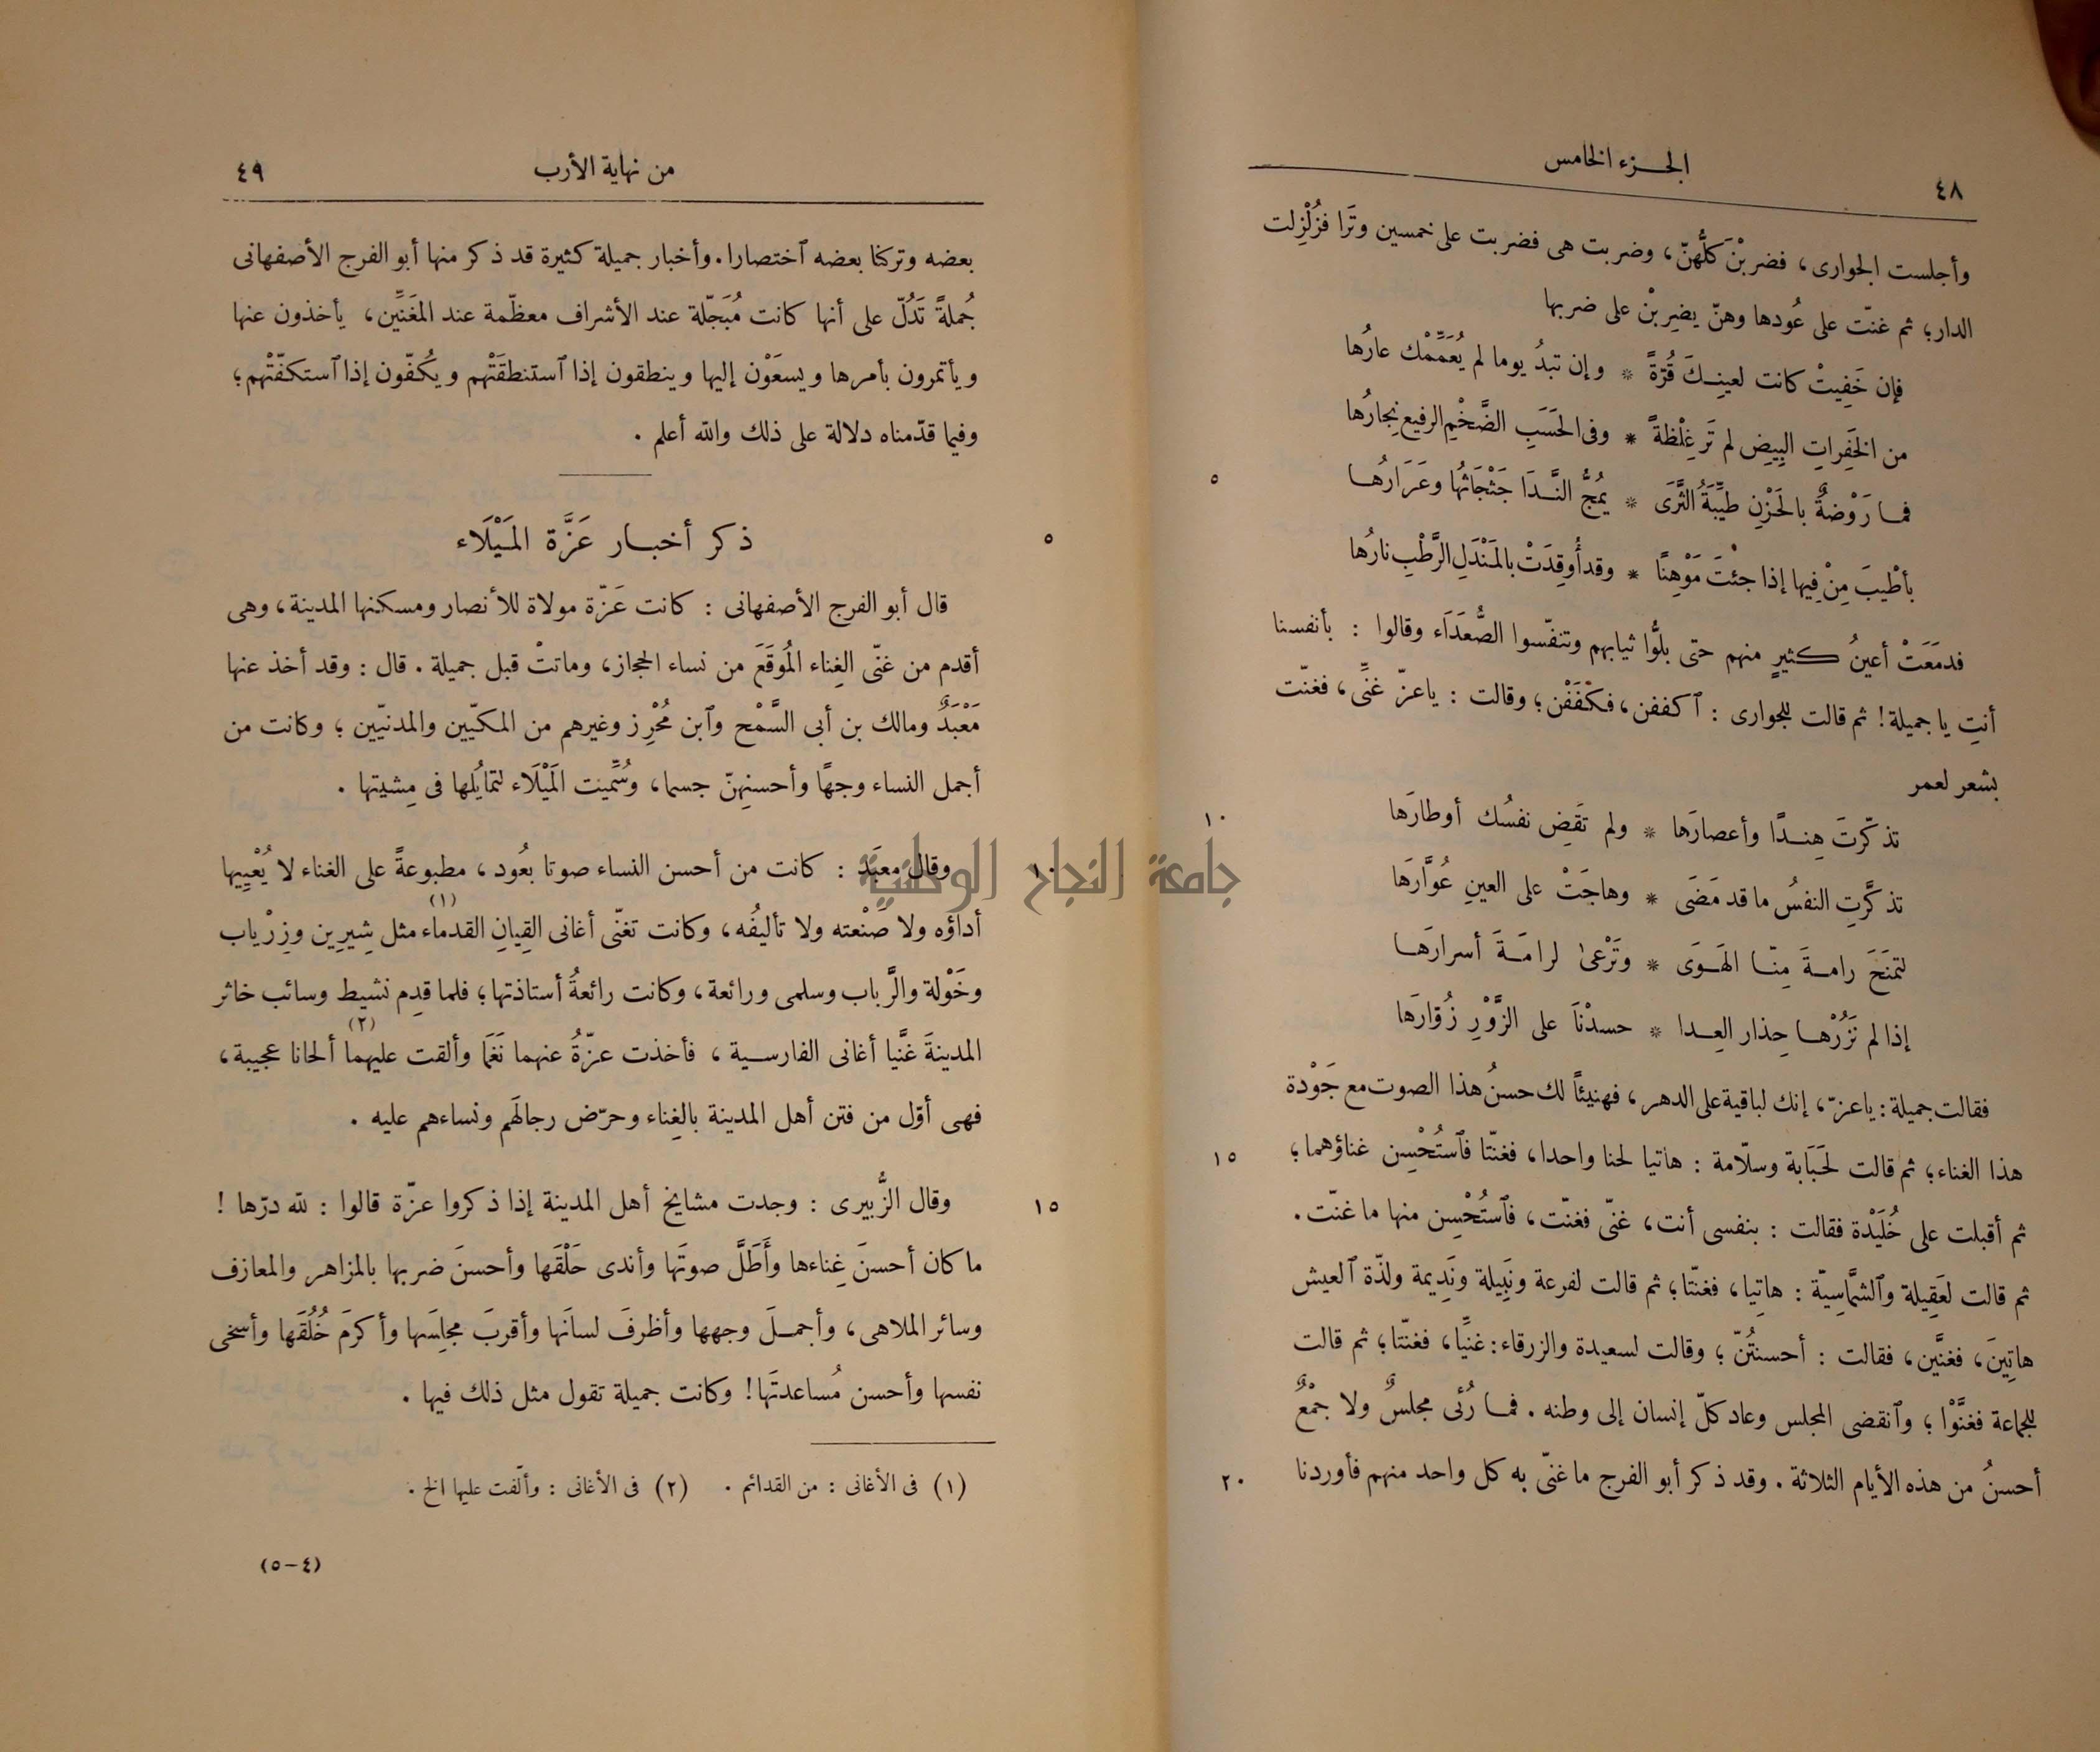 الجزء الخامس
٤٨
وأجلست الجوارى، فضربْنَ كلُّهنّ، وضربت هى فضربت على خمسين وتَرا فزُلْزِلت
الدار؛ ثم غنّت على عُودها وهنّ يضرِبْن على ضربها
فإن خَفِيتْ كانت لعينِكَ قُرّةً * وإن تبدُ يوما لم يُعَمِّمْك عارُها
من الخَفِراتِ البِيضِ لم تَر غِلْظةً * وفى الحَسَبِ الضَّخْمِ الرفيع نِجارُها
٥
فما رَوْضةٌ بالحَزْنِ طيِّبَةُ الثَّرَى * يَمُجُّ النَّدَا جَثْجَاثُها وعَرَارُها
بأطْيبَ مِنْ فِيها إذا جئْتَ مَوْهِنًا * وقد أُوقِدَتْ بالمَنْدَلِ الرَّطْبِ نارُها
فدمَعَتْ أعينُ كثيرٍ منهم حتى بلُّوا ثيابهم وتنفّسوا الصُّعَدَاء وقالوا : بأنفسنا
أنتِ يا جميلة! ثم قالت للجوارى : آكففن، فكفَفْن؛ وقالت : ياعزّ غنِّى، فغنّت
بشعر لعمر
١٠
تذكّرتَ هِندًا وأعصارَها * ولم تقَضِ نفسُك أوطارَها
تذكَّرتِ النفسُ ما قد مَضَى * وهاجَتْ على العينِ عُوَّارَها
لتمنَحَ رامةَ مِنّا الهَوَى * وتَرْعىٰ لرامَةَ أسرارَها
إذا لم نَزُرْها حِذار العِدا * حسدْنَا على الزَّوْرِ زُوّارَها
فقالت جميلة : ياعزّ، إنك لباقية على الدهر، فهنيئاً لك حسنُ هذا الصوت مع جَوْدة
١٥
هذا الغناء؛ ثم قالت لحَبَابة وسلّامة : هاتيا لحنا واحدا، فغنّتا فآستُحْسِن غناؤهما؛
ثم أقبلت على خُلَيْدة فقالت : بنفسى أنت، غنّى فغنّت، فآستُحْسِن منها ما غنّت.
ثم قالت لعَقِيلة وآلشَّمَّاسِيّة : هاتِيا، فغنّتا؛ ثم قالت لفرعة ونَبِيلة ونَدِيمة ولذّة آلعيش
هاتِينَ، فغنَّين، فقالت : أحسنتُنّ؛ وقالت لسعيدة والزرقاء: غنِّيا، فغنّتا؛ ثم قالت
للجماعة فغنَّوْا؛ وآنقضى المجلس وعاد كلّ إنسان إلى وطنه . فما رُئى مجلسٌ ولا جمْعٌ
٢٠
أحسنُ من هذه الأيام الثلاثة . وقد ذكر أبو الفرج ما غنّى به كل واحد منهم فأوردنا
من نهاية الأرب
٤٩
بعضه وتركنا بعضه آختصارا. وأخبار جميلة كثيرة قد ذكر منها أبو الفرج الأصفهانى
جُملةً تَدُلّ على أنها كانت مُبَجّلة عند الأشراف معظّمة عند المغَنِّين، يأخذون عنها
ويأتمرون بأمرها ويسعَوْن إليها وينطقون إذا آستنطقَتْهم ويكُفّون إذا آستكفّتْهم؛
وفيما قدّمناه دلالة على ذلك والله أعلم .
٥
ذكر أخبار عَزَّة المَيْلَاء
قال أبو الفرج الأصفهانى : كانت عَزّة مولاة للأنصار ومسكنها المدينة، وهى
أقدم من غنّى الغِناء المُوقَعَ من نساء الحجاز، وماتتْ قبل جميلة . قال : وقد أخذ عنها
مَعْبَدٌ ومالك بن أبى السَّمْح وآبن مُحْرِز وغيرهم من المكيّين والمدنيّين؛ وكانت من
أجمل النساء وجهًا وأحسنِهنّ جسما، وسُمِّيت المَيْلَاء لتمايُلها فى مِشيتها .
جامعة النجاح الوطنية
١٠
وقال معبَد : كانت من أحسن النساء صوتا بعُود، مطبوعةً على الغناء لا يُعْيِيها
أداؤه ولا صَنْعته ولا تأليفُه، وكانت تغنّى أغانى القِيانِ القدماء(١) مثل شِيرِين وزِرْياب
وخَوْلة والرَّباب وسلمى ورائعة، وكانت رائعةُ أستاذتها؛ فلما قدِم نشيط وسائب خاثر
المدينةَ غَنَّيا أغانى الفارسية، فأخذت عزّةُ عنهما نَغَما وألقت عليهما(٢) ألحانا عجيبة،
فهى أوّل من فتن أهل المدينة بالغِناء وحرّض رجالَهم ونساءهم عليه .
١٥
وقال الزُّبيرى : وجدت مشايخ أهل المدينة إذا ذكروا عزّة قالوا : لله درّها !
ما كان أحسنَ غِناءها وأَطَلَّ صوتَها وأندى حَلْقَها وأحسنَ ضربها بالمزاهر والمعازف
وسائر الملاهى، وأجملَ وجهها وأظرفَ لسانَها وأقربَ مجلِسَها وأكرمَ خُلُقَها وأسخى
نفسها وأحسن مُساعدتَها! وكانت جميلة تقول مثل ذلك فيها .
(١) فى الأغانى : من القدائم . (٢) فى الأغانى : وألّفت عليها الخ .
(٤-٥)